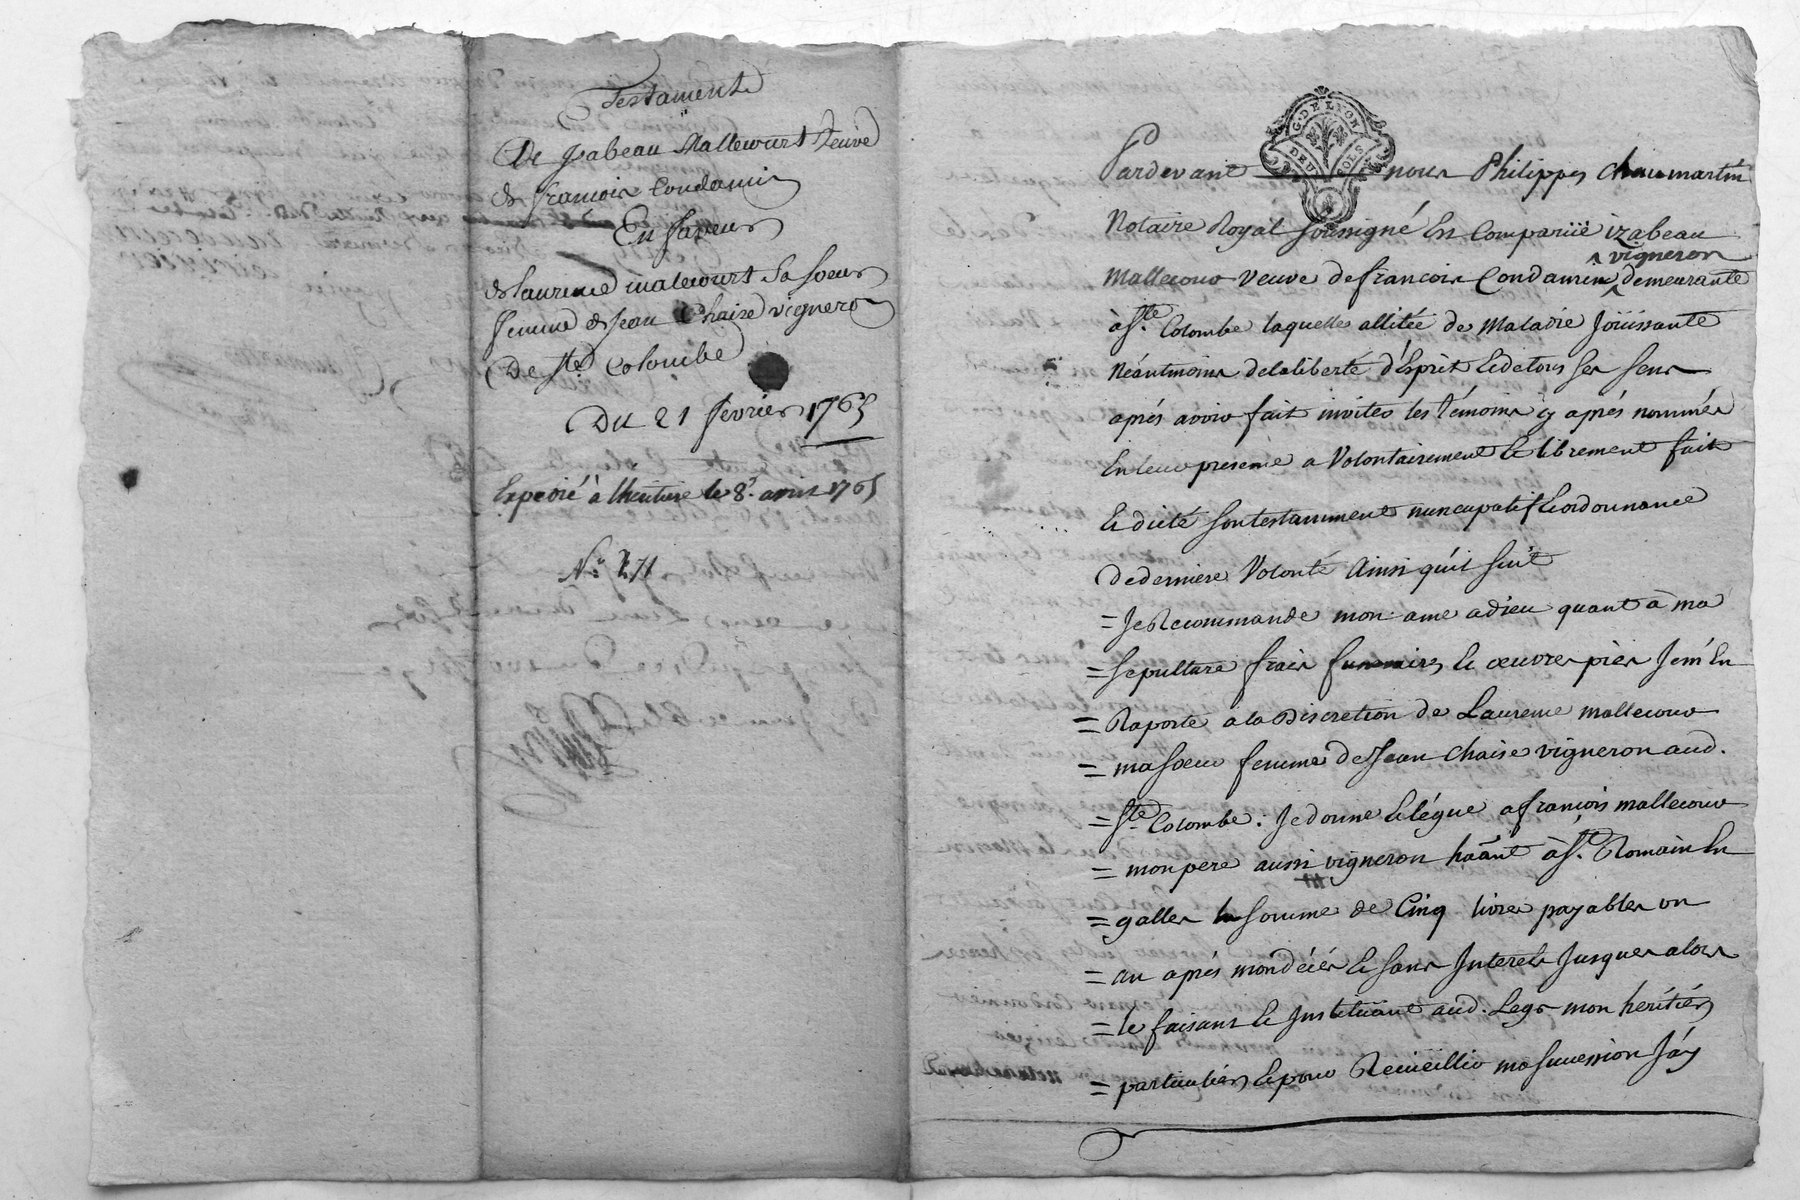 Testament
De Jzabeau Mallecourt Veuve
de françois Condamin
En faveur
de laurence malecourt sa soeur
femme de Jean Chaize vigneron
De Ste Colombe
Du 21 fevrier 1765
Expedié à l'heritiere le 8e avril 1765
No 271
G. DE LYON
DEUX SOLS
Pardevant nous Philippes Chaumartin
Notaire Royal soussigné Est Comparüe izabeau
Mallecour veuve de francois Condamin vigneron demeurante
à Ste Colombe laquelle allitée de Maladie Joüissante
Néantmoins de la liberté d'Esprit Et de tous ses sens
aprés avoir fait inviter les témoins cy aprés nommés
En leur presence a Volontairement Et librement fait
Et dicté son testamment nuncupatif Et ordonnance
de derniere Volonté Ainsi qu'il suit
= Je Recommande mon ame a dieu quant à ma
= sepulture frais funeraires Et oeuvres pies Jem'En
= Raporte à la Discretion de Laurence mallecour
= ma soeur femme de Jean Chaise vigneron aud.
= Ste Colombe : Je donne Et légue a françois mallecour
= mon pere aussi vigneron ha͞ant à St. Romain En
= galles la somme de Cinq livres payables un
= an aprés mon décés Et sans Interets Jusques alors
= le faisant Et Instituant aud. Legs mon heritier
= particulier Et pour Recüeillir ma succession J'ay